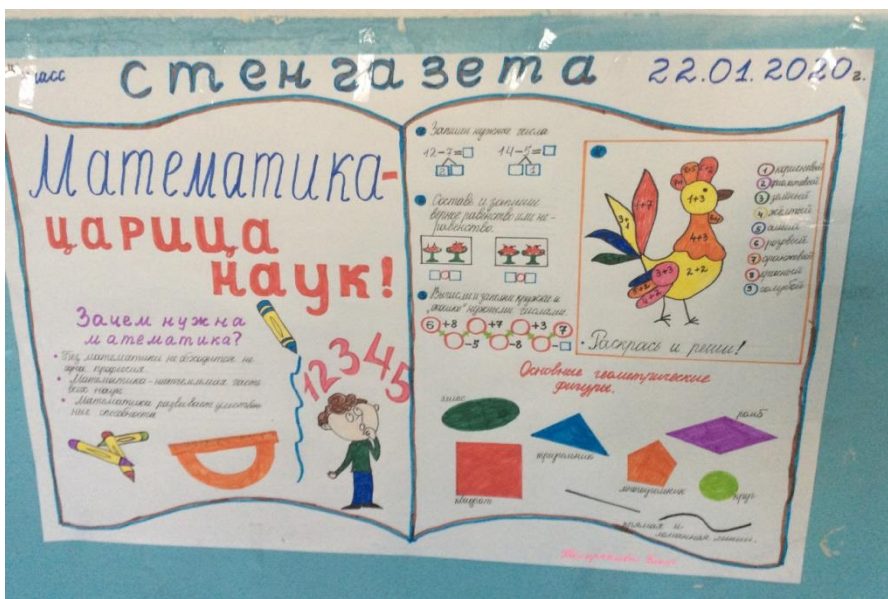 класс
стенгазета
22.01.2020г.
Математика-
царица
наук!
Зачем нужна
математика?
• Без математики не обходится не
одна профессия
• Математика-неотъемлемая часть
всех наук
• Математика развивает умствен-
ные способности
1 2 3 4 5
Запиши нужные числа
12-7=
14-5=
Составь и запиши
верное равенство или не-
равенство.
Вычисли и заполни кружки и
нужными числами.
6 +8 +7 +3 7
-5 -8 -
1+7
3+1
1+3
4+3
3+3
2+2
1 коричневый
2 фиолетовый
3 зелёный
4 жёлтый
5 синий
6 розовый
7 оранжевый
8 красный
9 голубой
• Раскрась и реши!
Основные геометрические
фигуры.
элипс
треугольник
ромб
квадрат
многоугольник
круг
прямая и
ломанная линии.